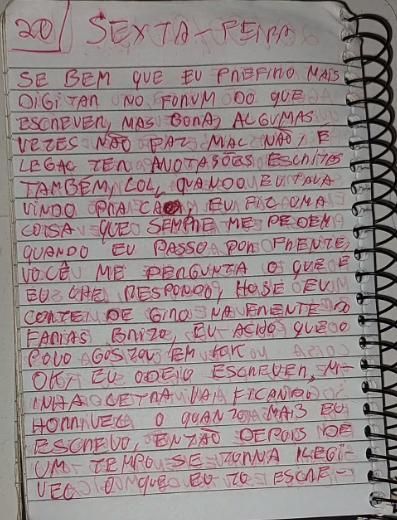 20 SEXTA-FEIRA
SE BEM QUE EU PREFIRO MAIS
DIGITAR NO FORUM DO QUE
ESCREVER, MAS BORA, ALGUMAS
VEZES NÃO FAZ MAL NÃO, E
LEGAL TER ANOTASÕES ESCRITAS
TAMBEM, LOL, QUANDO EU TAVA
VINDO PRA CA EU FIZ UMA
COISA QUE SEMPRE ME PEDEM
QUANDO EU PASSO POR FRENTE,
VOCÊ ME PERGUNTA O QUE E
EU LHE RESPONDO, HOJE EU
CONTEI DE NOVAMENTE O
FARIAS BRITO, EU ACHO QUE O
POVO GOSTOU EM
OK, EU ODEIO ESCREVER, MI-
NHA LETRA VAI FICANDO
HORRIVEL O QUANTO MAIS EU
ESCREVO, ENTÃO DEPOIS DE
UM TEMPO SE TORNA ILEGI
VEL O QUE EU TO ESCRE-